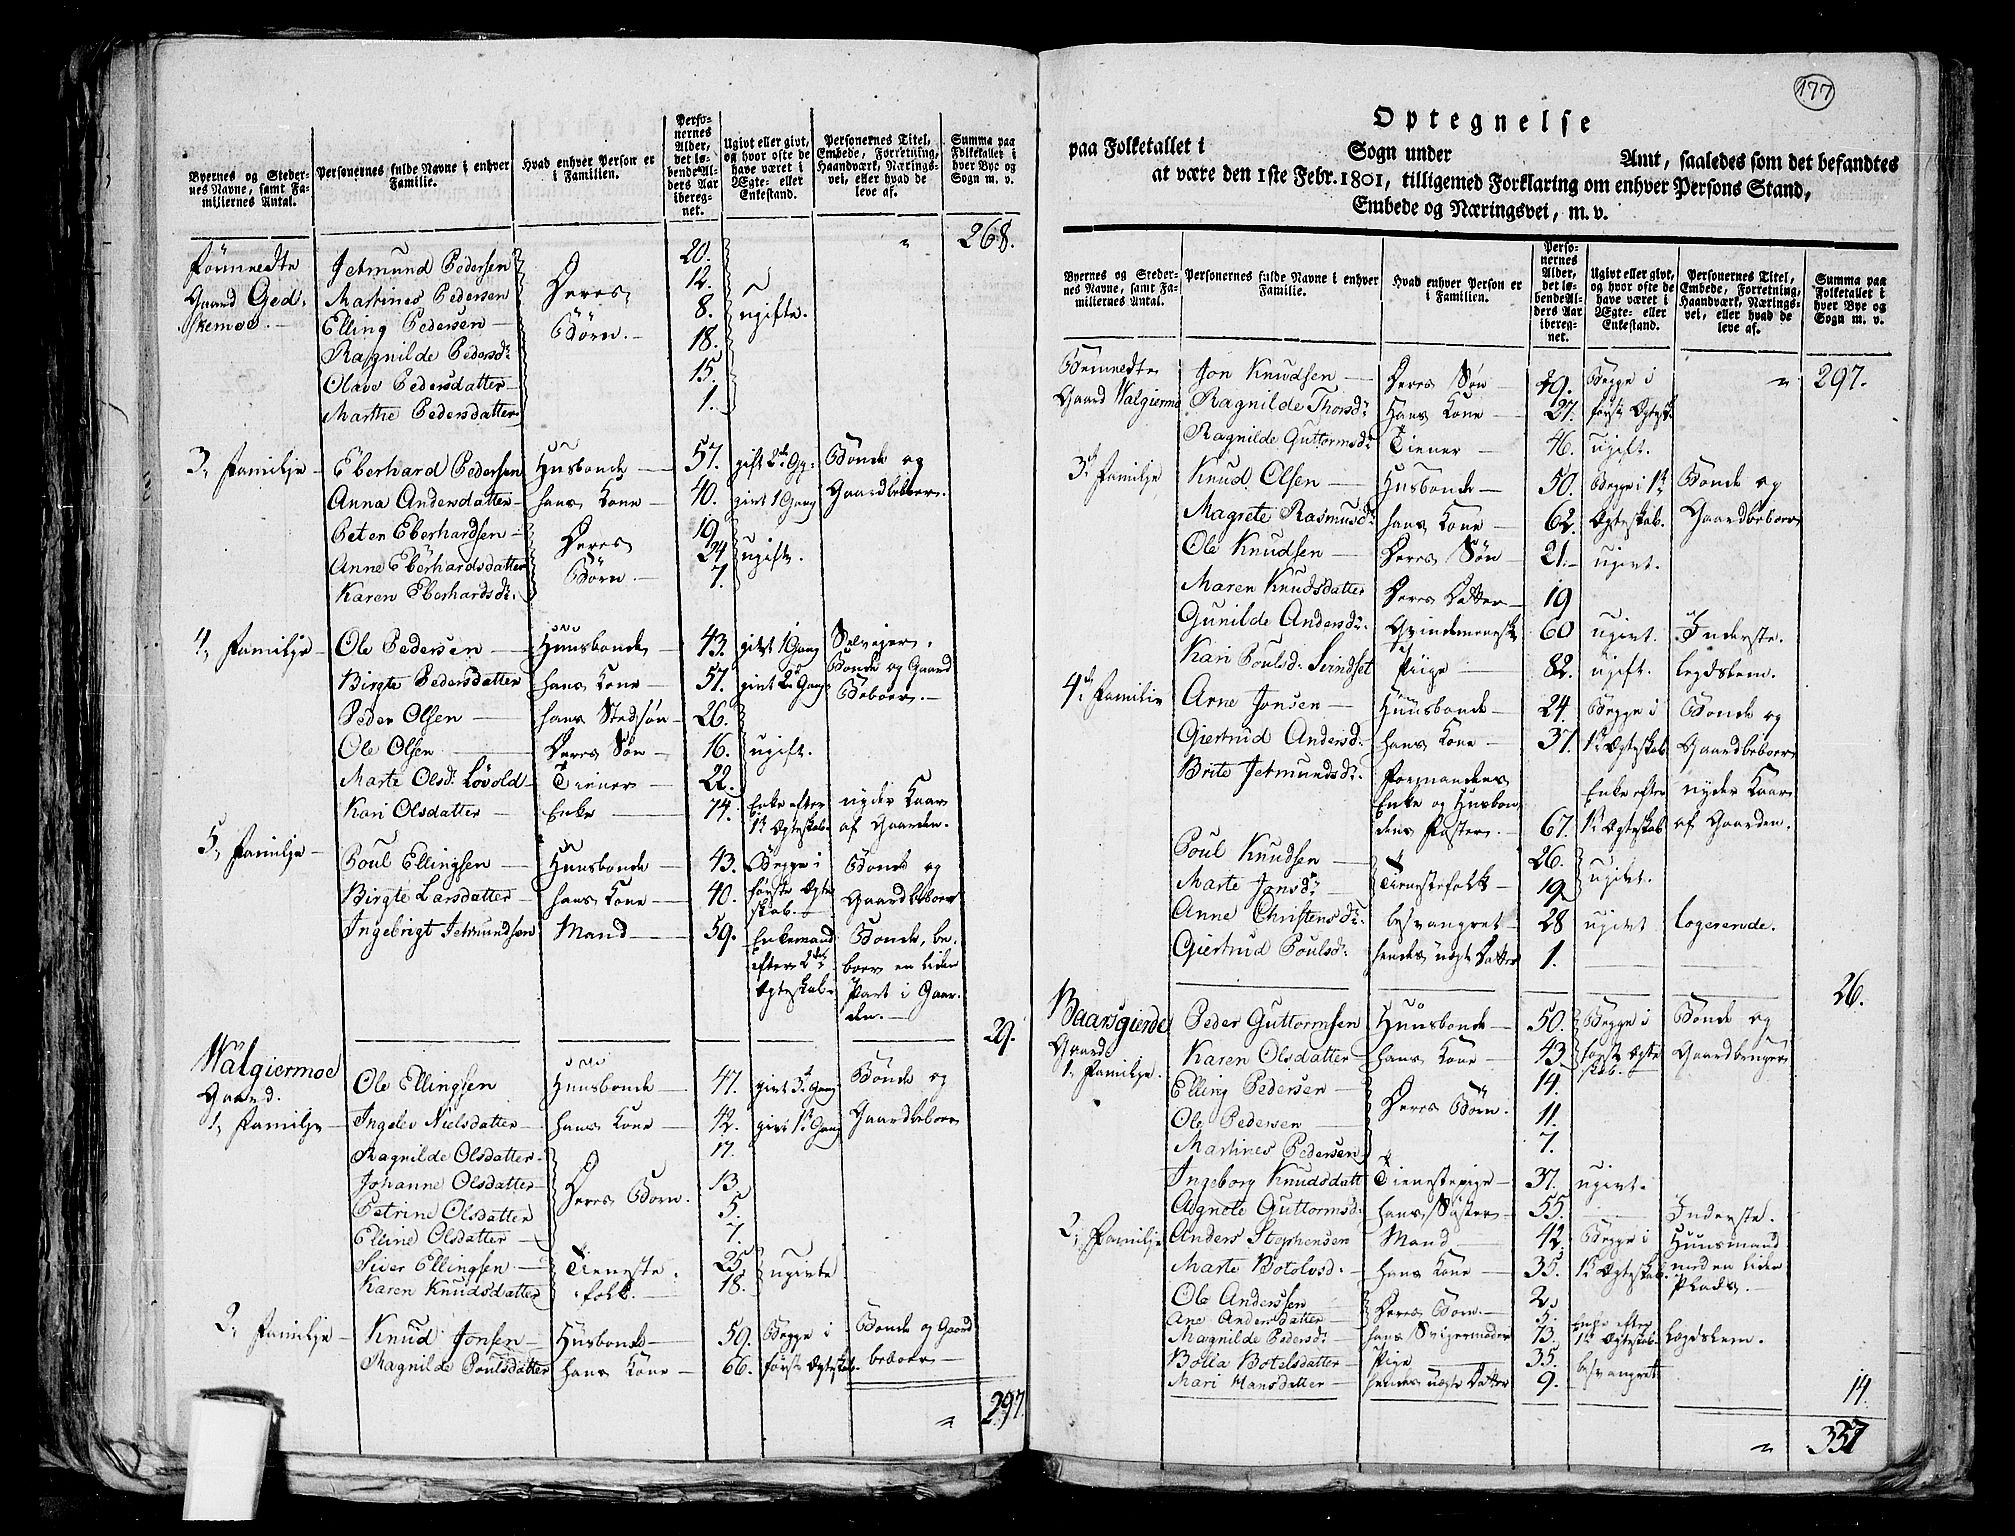 Byernes og Stedernes Navne, samt Familiernes Antal.
Personernes fulde Navne i enhver Familie.
Hvad enhver Person er i Familien.
Personernes Alder, det løbende Alders Aar iberegnet.
Ugivt eller givt, og hvor ofte de have været i Ægte- eller Enkestand.
Personernes Titel, Embede, Forretning, Haandværk, Næringsvei, eller hvad de leve af.
Summa paa Folketallet i hver Bye og Sogn m. v.
268.
Gaard Gedskemoe.
Jetmund Pedersen 20.
Martines Pedersen Deres 12.
Elling Pedersen Børn. 8. ugifte.
Ragnilde Pedersdr 18.
Olave Pedersdatter 15.
Marthe Pedersdatter 1.
3, Familje Eberhard Pedersen Husbonde 57. gift 2den Gg: Bonde og
Anna Andersdatter hans Kone 40. givt 1 Gang Gaardbeboer.
Peter Eberhardsen 19
Anne Eberhardsdatter Deres 24 ugift.
Karen Eberhardsdr. Børn. 7.
4, Familje Ole Pedersen Huusbonde 43. givt 1 Gang Selvejer,
Birgte Pedersdatter hans Kone 57. givt 2d Gang Bonde og Gaard Beboer.
Peder Olsen hans Stedsøn 26.
Ole Olsen Deres Søn 16. ugift.
Marte Olsdr. Lövold Tiener 22.
Kari Olsdatter Enke 74. Enke efter 1ste Ægteskab. nyder Kaar af Gaarden.
5, Familje Poul Ellingsen Huusbonde 43. Begge i Bonde og
Birgte Larsdatter hans Kone 40. første Ægteskab. Gaardbeboer
Ingebrigt Jetmundsen Mand 59. Enkemand efter 2det Ægteskab. Bonde, beboer en liden Part i Gaarden.
29.
Walgiermoe Gaard.
Ole Ellingsen Huusbonde 47. givt 3de Gang Bonde og
1, Familje Ingelev Nielsdatter hans Kone 42. givt 1ste Gang Gaardbeboer
Magnilde Olsdatter 17.
Johanne Olsdatter Deres Børn. 13
Petrine Olsdatter 5.
Elline Olsdatter 7.
Siver Ellingsen Tieneste- 25. ugivte
Karen Knudsdatter folk. 18.
2, Familje Knud Jonsen Husbonde 59. Begge i Bonde og Gaard
Magnilde Poulsdatter hans Kone 66. første Ægteskab. beboer
297.
177
Optegnelse
paa Folketallet i Sogn under Amt, saaledes som det befandtes
at være den 1ste Febr. 1801, tilligemed Forklaring om enhver Persons Stand,
Embede og Næringsvei, m. v.
Byernes og Stedernes Navne, samt Familiernes Antal.
Personernes fulde Navne i enhver Familie.
Hvad enhver Person er i Familien.
Personernes Alder, det løbende Alders Aar iberegnet.
Ugivt eller givt, og hvor ofte de have været i Ægte- eller Enkestand.
Personernes Titel, Embede, Forretning, Haandværk, Næringsvei, eller hvad de leve af.
Summa paa Folketallet i hver Bye og Sogn m. v.
Bemeldte Jon Knudsen Deres Søn 29. Begge i 297.
Gaard Walgiermo Ragnilde Thorsdr hans Kone 27. første Ægtesk.
Ragnilde Guttormsdr Tiener 46. ugift.
3die Familje Knud Olsen Husbonde 50. Begge i 1ste Bonde og
Magrete Rasmusdr hans Kone 62. Ægteskab. Gaardbeboer
Ole Knudsen Deres Søn 21. ugivt.
Maren Knudsdatter Deres Datter 19
Gunilde Andersdr. Qvindemeneske 60 ugivt. Inderste.
Kari Poulsdr. Piige 82. ugift. legdslem.
4de Familie Arne Jonsen Huusbonde 24. Begge i Bonde og
Giertrud Andersdr. hans Kone 37. 1ste Ægteskab Gaardbeboer
Brite Jetmundsdr. Formandens Enke og Husbondens Faster. 67. Enke efter 1ste Ægteskab nyder Kaar af Gaarden.
Poul Knudsen 26.
Marte Jonsdr Tienestefolk 19 ugivt.
Anne Christensdr. besvangret 28 ugivt logerende.
Giertrud Poulsdr. hendes uægte Datter 1.
26.
Baarsgierde Gaard Peder Guttormsen Huusbonde 50. Begge i Bonde og
1, Familje. Karen Olsdatter hans Kone 43 første Ægteskab. Gaardbruger
Elling Pedersen 14.
Ole Pedersen Deres Börn. 11.
Martines Pedersen 7.
Ingeborg Knudsdatt Tienestepige 37. ugivt.
Agnete Guttormsdr. hans Søster 55. Inderste.
2, Familje Anders Stephensen Mand 42. Begge i Huusmand
Marte Botolvsdr. hans Kone 35. 1ste Ægteskab. med en liden Plads.
Ole Anderssen Deres Börn. 2.
Ane Andersdatter 5.
Magnilde Pedersdr. hans Svigermoder 73. Enke efter 1ste Ægteskab. Lægdslem.
Bolla Botelsdatter Pige 35. besvangret
Mari Hansdatter hendes uægte Datter 9.
14.
337